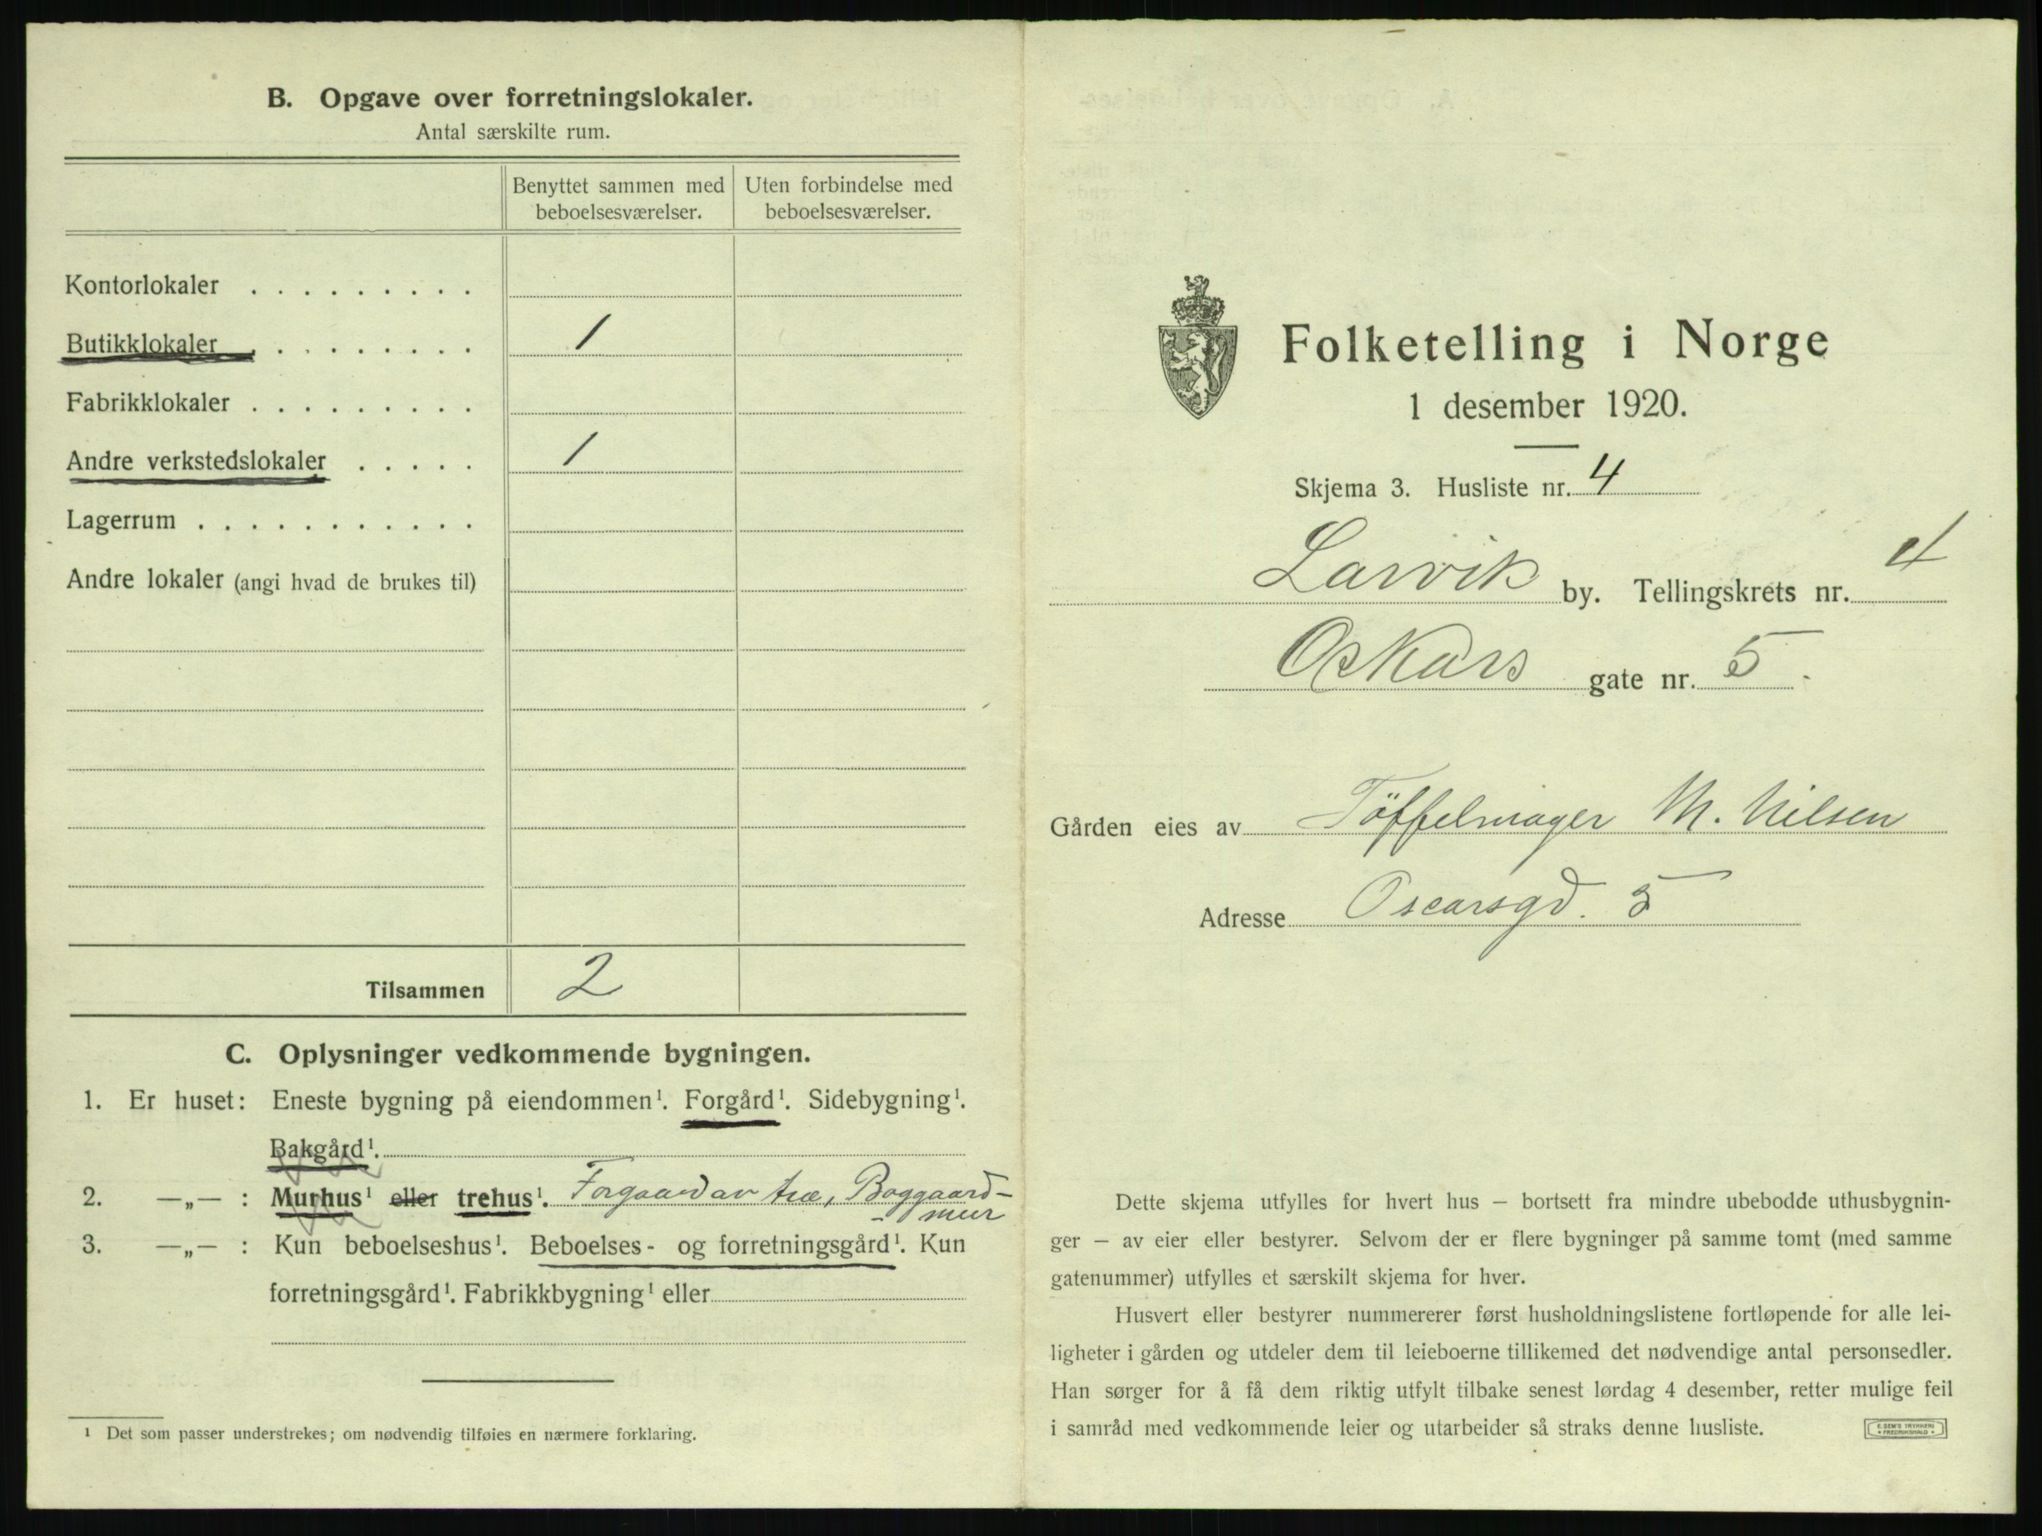 B. Opgave over forretningslokaler.
Antal særskilte rum.
Benyttet sammen med
beboelsesværelser.
Uten forbindelse med
beboelsesværelser.
Kontorlokaler . . . . . . . . .
Butikklokaler . . . . . . . . . 1
Fabrikklokaler . . . . . . . . .
Andre verkstedslokaler . . . . . 1
Lagerrum . . . . . . . . . . .
Andre lokaler (angi hvad de brukes til)
Tilsammen 2
C. Oplysninger vedkommende bygningen.
1. Er huset: Eneste bygning på eiendommen¹. Forgård¹. Sidebygning¹.
Bakgård¹.
2. —„— : Murhus¹ eller trehus¹. Forgaard av træ, Baggaard-
- mur
3. —„— : Kun beboelseshus¹. Beboelses- og forretningsgård¹. Kun
forretningsgård¹. Fabrikkbygning¹ eller
¹ Det som passer understrekes; om nødvendig tilføies en nærmere forklaring.
Folketelling i Norge
1 desember 1920.
Skjema 3. Husliste nr. 4
Larvik by. Tellingskrets nr. 4
Oskars gate nr. 5.
Gården eies av Töffelmager M. Nilsen
Adresse Oscarsgd. 5
Dette skjema utfylles for hvert hus – bortsett fra mindre ubebodde uthusbygnin-
ger – av eier eller bestyrer. Selvom der er flere bygninger på samme tomt (med samme
gatenummer) utfylles et særskilt skjema for hver.
Husvert eller bestyrer nummererer først husholdningslistene fortløpende for alle lei-
ligheter i gården og utdeler dem til leieboerne tillikemed det nødvendige antal personsedler.
Han sørger for å få dem riktig utfylt tilbake senest lørdag 4 desember, retter mulige feil
i samråd med vedkommende leier og utarbeider så straks denne husliste.
E. SEM'S TRYKKERI
• FREDRIKSHALD •